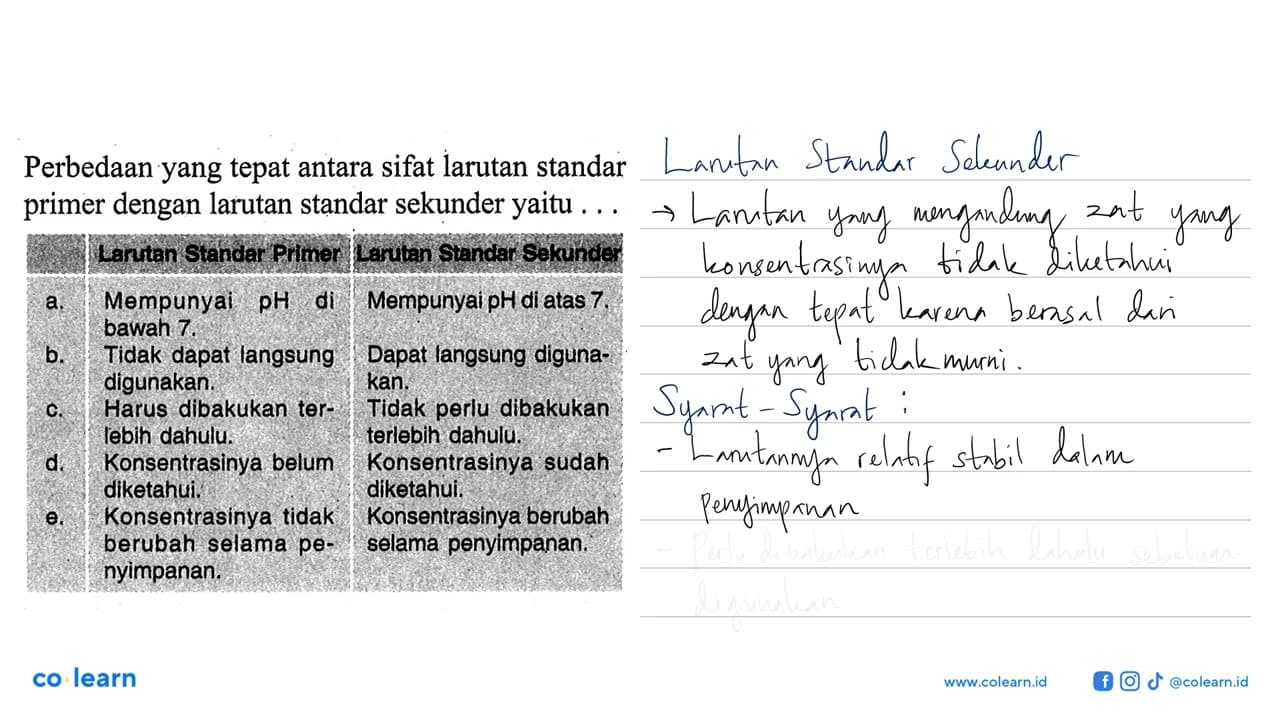 Perbedaan yang tepat antara sifat larutan standar
primer dengan larutan standar sekunder yaitu . . .
Larutan Standar Primer Larutan Standar Sekunder
a. Mempunyai pH di bawah 7. Mempunyai pH di atas 7.
b. Tidak dapat langsung digunakan. Dapat langsung diguna-kan.
c. Harus dibakukan ter-lebih dahulu. Tidak perlu dibakukan terlebih dahulu.
d. Konsentrasinya belum diketahui. Konsentrasinya sudah diketahui.
e. Konsentrasinya tidak berubah selama pe-nyimpanan. Konsentrasinya berubah selama penyimpanan.
Larutan Standar Sekunder
→ Larutan yang mengandung zat yang
konsentrasinya tidak diketahui
dengan tepat karena berasal dari
zat yang tidak murni.
Syarat - Syarat :
- Larutannya relatif stabil dalam
Penyimpanan
- Perlu dibakukan terlebih dahulu sebelum
digunakan
co learn
www.colearn.id
@colearn.id